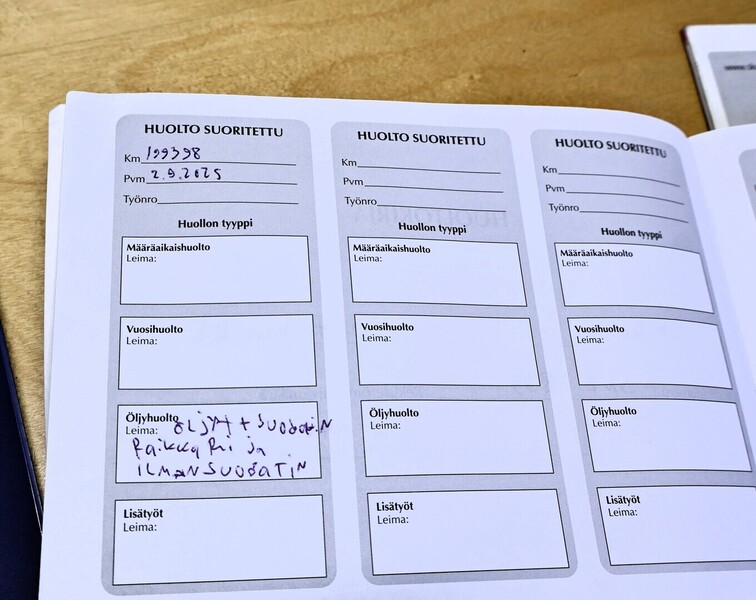 HUOLTO SUORITETTU
Km 199398
Pvm 2.9.2025
Työnro
Huollon tyyppi
Määräaikaishuolto
Leima:
Vuosihuolto
Leima:
Öljyhuolto
Leima: ÖLJYT + SUODATIN
RaikkaRi ja
ILMANSUODATIN
Lisätyöt
Leima:
HUOLTO SUORITETTU
Km
Pvm
Työnro
Huollon tyyppi
Määräaikaishuolto
Leima:
Vuosihuolto
Leima:
Öljyhuolto
Leima:
Lisätyöt
Leima:
HUOLTO SUORITETTU
Km
Pvm
Työnro
Huollon tyyppi
Määräaikaishuolto
Leima:
Vuosihuolto
Leima:
Öljyhuolto
Leima:
Lisätyöt
Leima: